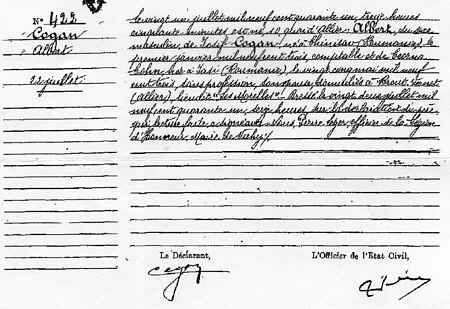 Nº 422
Cogan
Albert
21 juillet
Le vingt un juillet mil neuf cent quarante un treize heures
cinquante minutes est né, 10, quai d'Allier Albert, du sexe
masculin, de Josif Cogan, né à (Roumanie), le
premier janvier mil neuf cent trois, comptable et de
Cohn, née à Iasi (Roumanie), le vingt cinq mai mil neuf
cent trois, sans profession, son épouse, domiciliés à
(Allier), lieudit Dressé le vingt deux juillet mil
neuf cent quarante un, seize heures, sur la déclaration du père,
qui, lecture faite a signé avec Nous, Pierre officier de la Légion
d'Honneur, Maire de Vichy.
Le Déclarant,
L'Officier de l'Etat Civil,